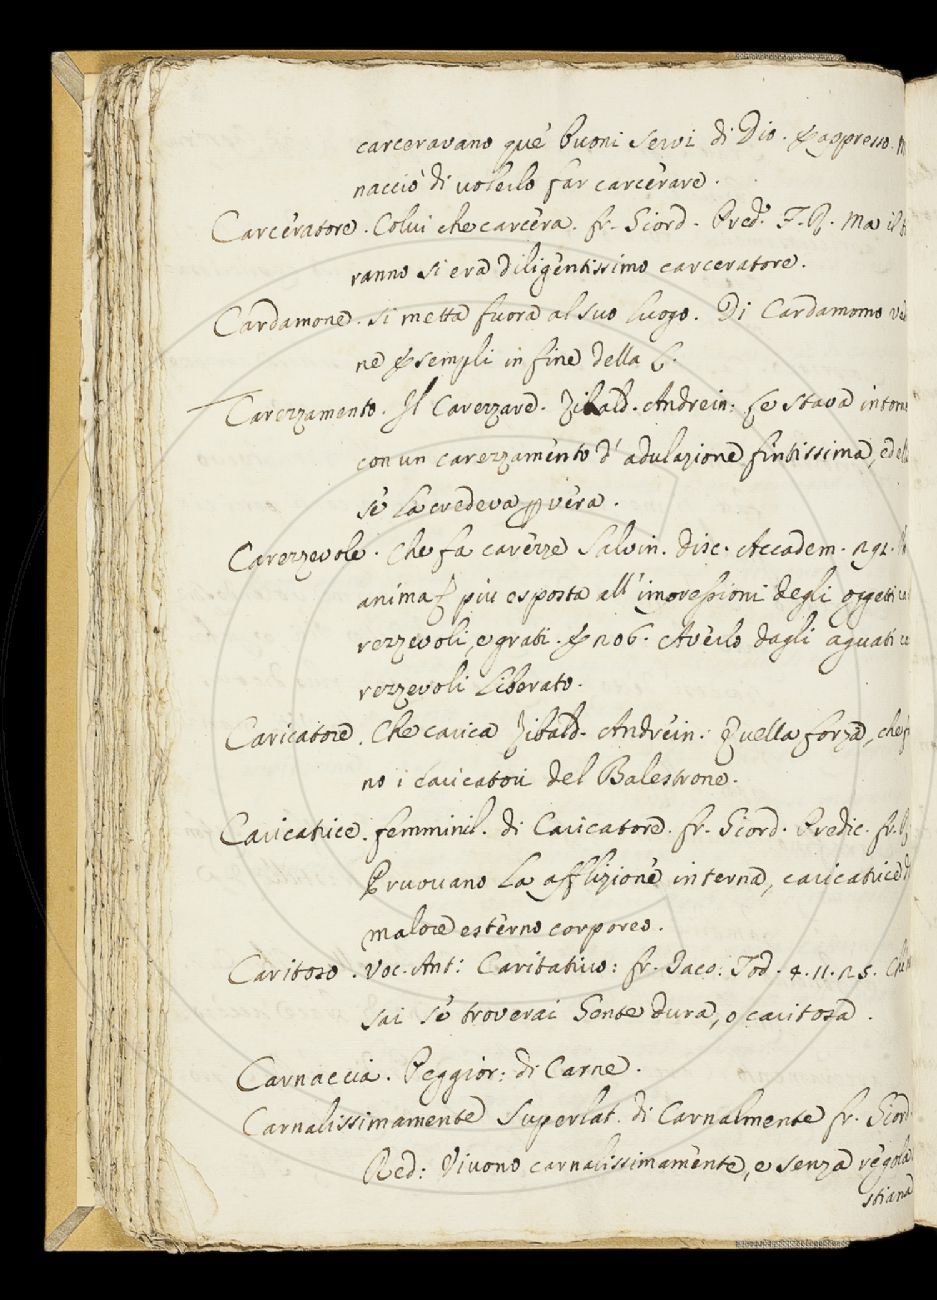 carceravano que' buoni servi di Dio. E appresso. M
nacciò di volerlo far carcerare.
Carceratore. Colui che carcera. fr. Giord. Pred. I. R. Ma il
ranno si era diligentissimo carceratore.
Cardamone. si metta fuora al suo luogo. Di Cardamomo
ne Esempli in fine della C.
Carezzamento. Il Carezzare. Zibald. Andrein: Le stava intor
con un carezzamento d'adulazione fintissima, ed
se la credeva vera.
Carezzevole. Che fa carezze Salvin. disc. Accadem. 292.
anima più esposta all'impressioni degli oggetti ca
rezzevoli, e grati. E 206. Averlo dagli aguati ca
rezzevoli Liberato.
Caricatore. Che carica Zibald. Andrein. Quella forza, che
no i caricatori del Balestrone.
Caricatrice. femminil. di Caricatore. fr. Giord. Predic. fr.
Pruovano la afflizione interna, caricatrice
malore esterno corporeo.
Caritoso. Voc. Ant: Caritativo: fr. Jaco: Tod. 4. 11. 25.
sai se troverai Gente dura, o caritosa.
Carnaccia. Peggior: di Carne.
Carnalissimamente Superlat. di Carnalmente fr. Giord
Red: Vivono carnalissimamente, e senza regola
stiana